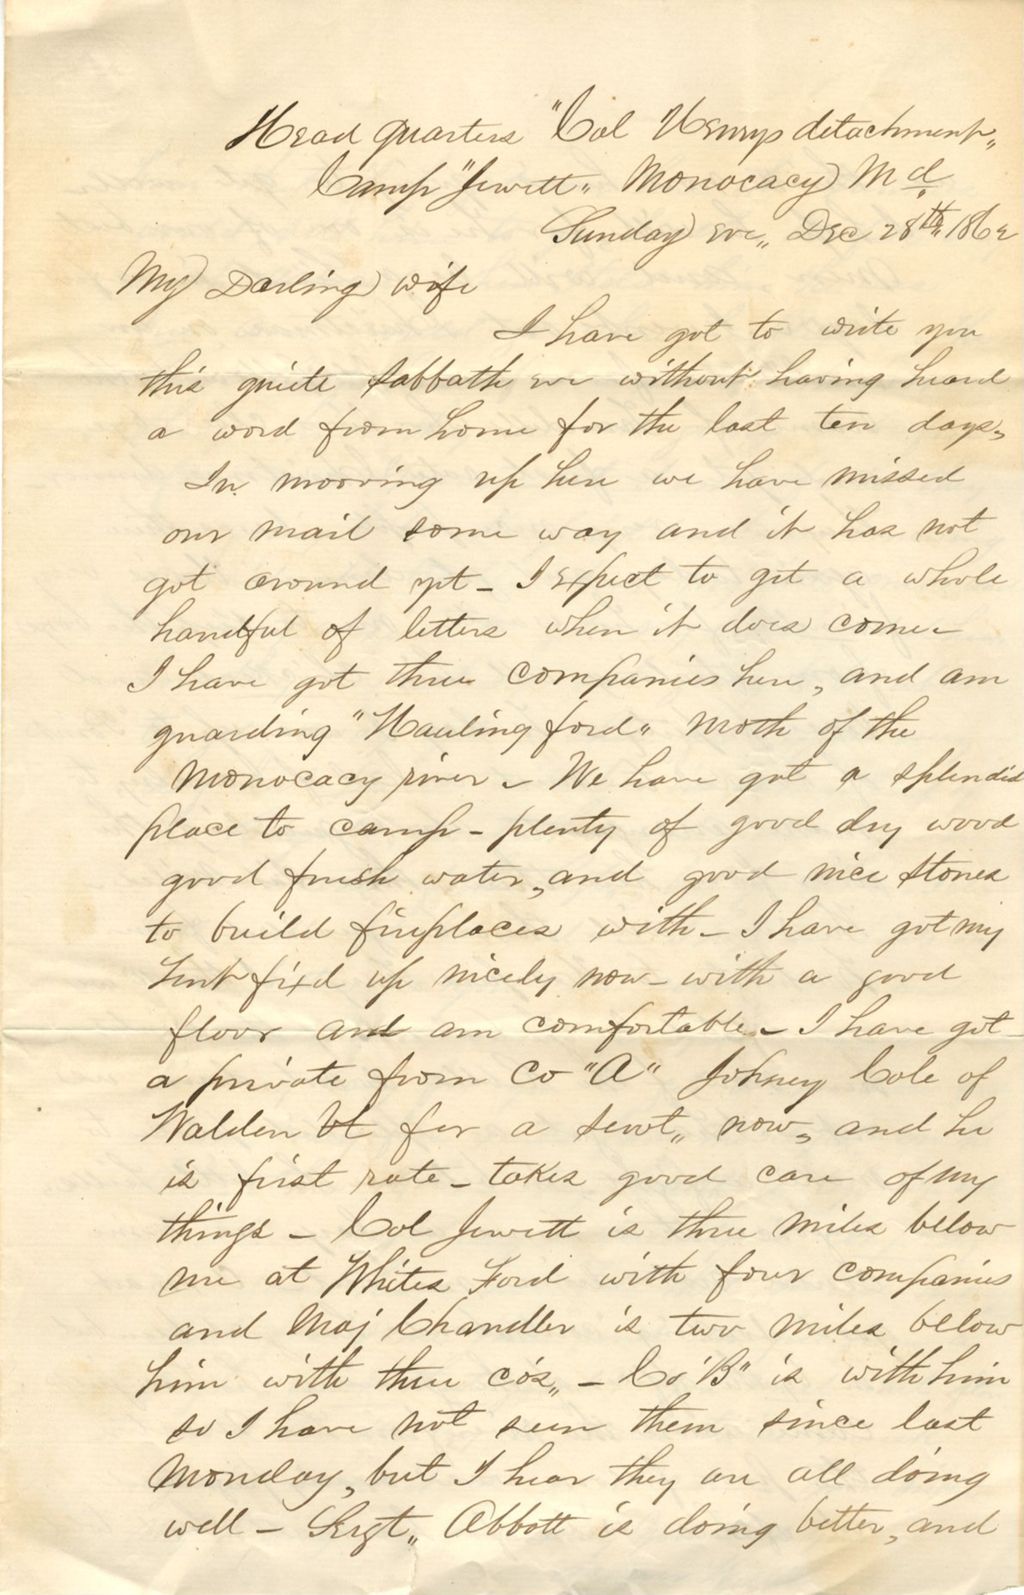 Head quarters "Col Henrys detachment"
Camp "Jewett" Monocacy Md
Sunday eve, Dec 28th 1862
My Darling wife
I have got to write you
this quiete sabbath eve without having heard
a word from home for the last ten days,
In mooving up here we have missed
our mail some way and it has not
got around yet - I expect to get a whole
handful of letters when it does come -
I have got three companies here, and am
guarding "Hauling ford" moth of the
Monocacy river - We have got a splendid
place to camp - plenty of good dry wood
good fresh water, and good nice stones
to build fireplaces with - I have got my
tent fixd up nicely now - with a good
floor and am comfortable - I have got
a private from Co "A" Johney Cole of
Walden Vt for a servt, now, and he
is first rate - takes good care of my
things - Col Jewett is three miles below
me at Whites Ford with four companies
and Maj Chandler is two miles below
him with three co's, - Co "B" is with him
so I have not seen them since last
Monday, but I hear they are all doing
well - Sergt, Abbott is doing better, and